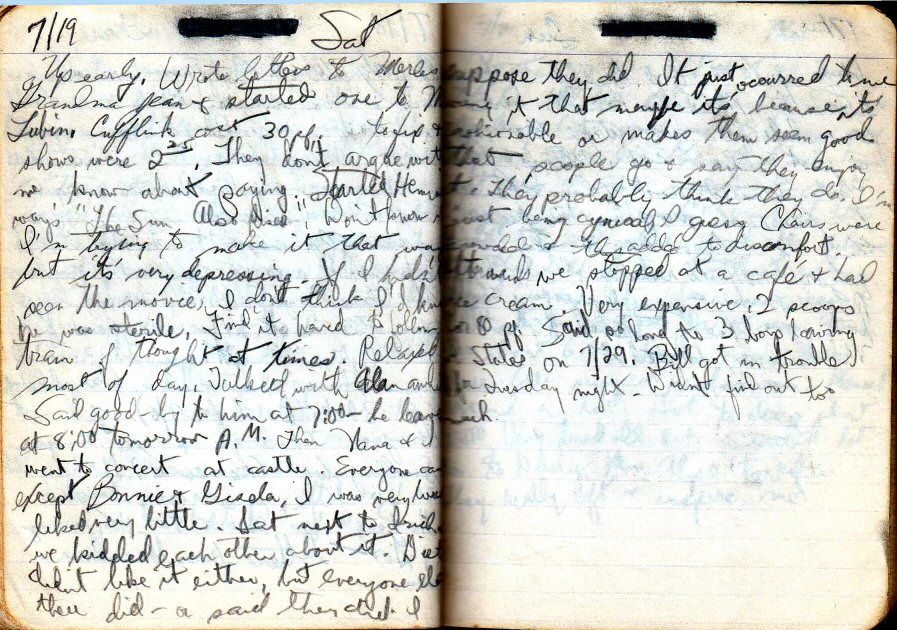 7/19 Sat
Up early. Wrote letters to Merles
Grandma Jean & started one to M
Lubin. Cufflink cost 30 pf. to fix &
shows were 2.25. They don't argue with
me know about paying. Started Heming
ways "The Sun Also Rises", Don't know
I'm trying to make it that way
but it's very depressing. If I hadn't
seen the movie, I don't think I'd know
he was sterile. Find it hard to follow
train of thought at times. Relaxed
most of day. Talked with Alan awhile
Said good-by to him at 7:00 - he leaves
at 8:00 tomorrow A.M. Then Nana & I
went to concert at castle. Everyone came
except Bonnie & Gisela. I was very
liked very little. Sat next to
we kidded each other about it.
didn't like it either, but everyone else
there did - or said they did. I
suppose they did. It just occurred to me
it that maybe its because its
or makes them seem good
that people go & say they enjoy
it. They probably think they do. I'm
just being cynical, I guess. Chairs were
crowded & to discomfort.
Afterwards we stopped at a café & had
ice cream. Very expensive. 2 scoops
for 80 pf. Said so long to 3 boys leaving
States on 7/29. Bill got in trouble
for Tuesday night - Didn't find out too
much.